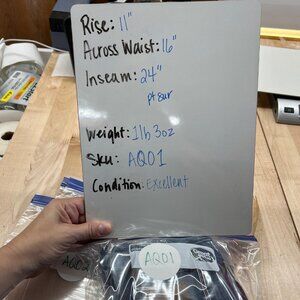 Rise: 11"
Across Waist: 16"
Inseam: 24"
Weight: 1lb 3oz
Sku: AQ01
Condition: Excellent
AQ02
AQ01